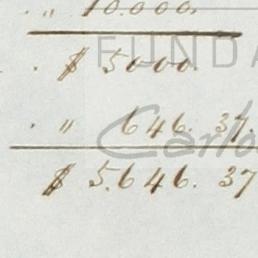 . " 10.000.
. $ 5000.
FUNDA
. " 646. 37.
Carlo
$ 5.646. 37